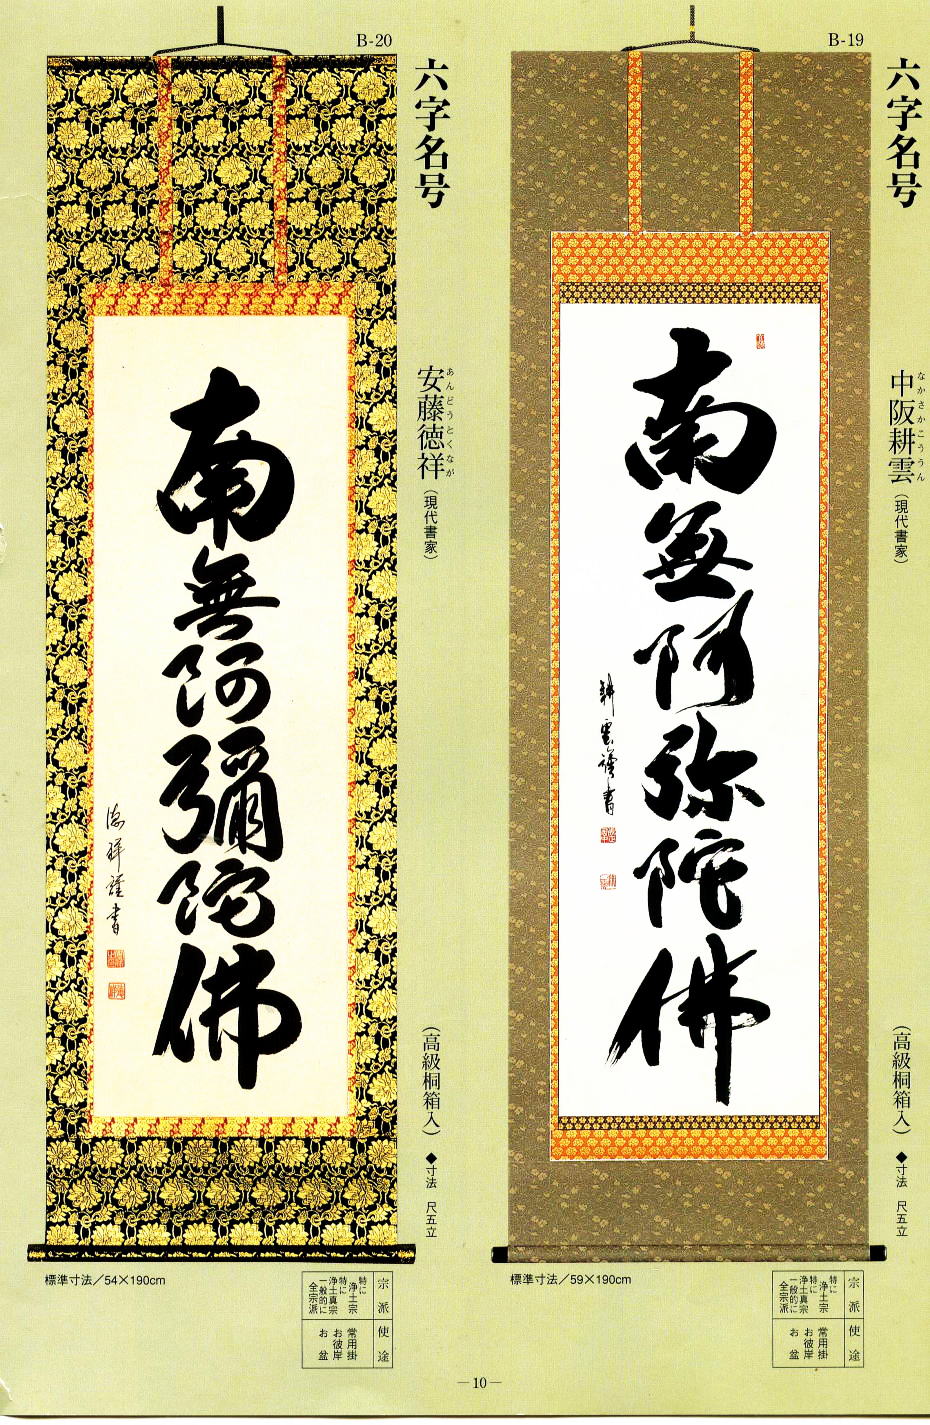 B-19
六字名号
中阪耕雲
なかさかこううん
（現代書家）
（高級桐箱入）
◆寸法 尺五立
南無阿弥陀佛
耕雲謹書
標準寸法／59×190cm
宗派
特に
浄土宗
特に
浄土真宗
一般的に
全宗派
使途
常用掛
お彼岸
お盆
B-20
六字名号
安藤徳祥
あんどうとくなが
（現代書家）
（高級桐箱入）
◆寸法 尺五立
南無阿彌陀佛
徳祥謹書
標準寸法／54×190cm
宗派
特に
浄土宗
特に
浄土真宗
一般的に
全宗派
使途
常用掛
お彼岸
お盆
—10—